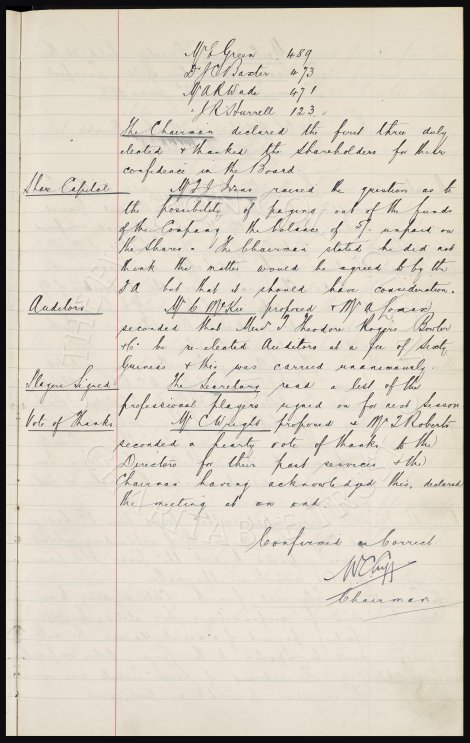 Mr E Green 489
Dr J C Baxter 473
Mr A R Wade 471
" J R Hurrell 123
The Chairman declared the first three duly
elected & thanked the shareholders for their
confidence in the Board.
Share Capital Mr J J raised the question as to
the possibility of paying out of the funds
of the Company the balance of 5/- unpaid on
the Shares. The Chairman stated he did not
think the matter would be agreed to by the
F A but that it should have consideration.
Auditors Mr C McKee proposed & Mr A
seconded that Messrs T. Theodore Rogers Bowler
& Co be re-elected Auditors at a fee of Sixty
Guineas & this was carried unanimously.
Players Signed The Secretary read a list of the
professional players signed on for next Season
Vote of Thanks Mr C Wright proposed & Mr L Roberts
seconded a hearty vote of thanks to the
Directors for their past services & the
Chairman having acknowledged this, declared
the meeting at an end
Confirmed as Correct
W C Cuff
Chairman